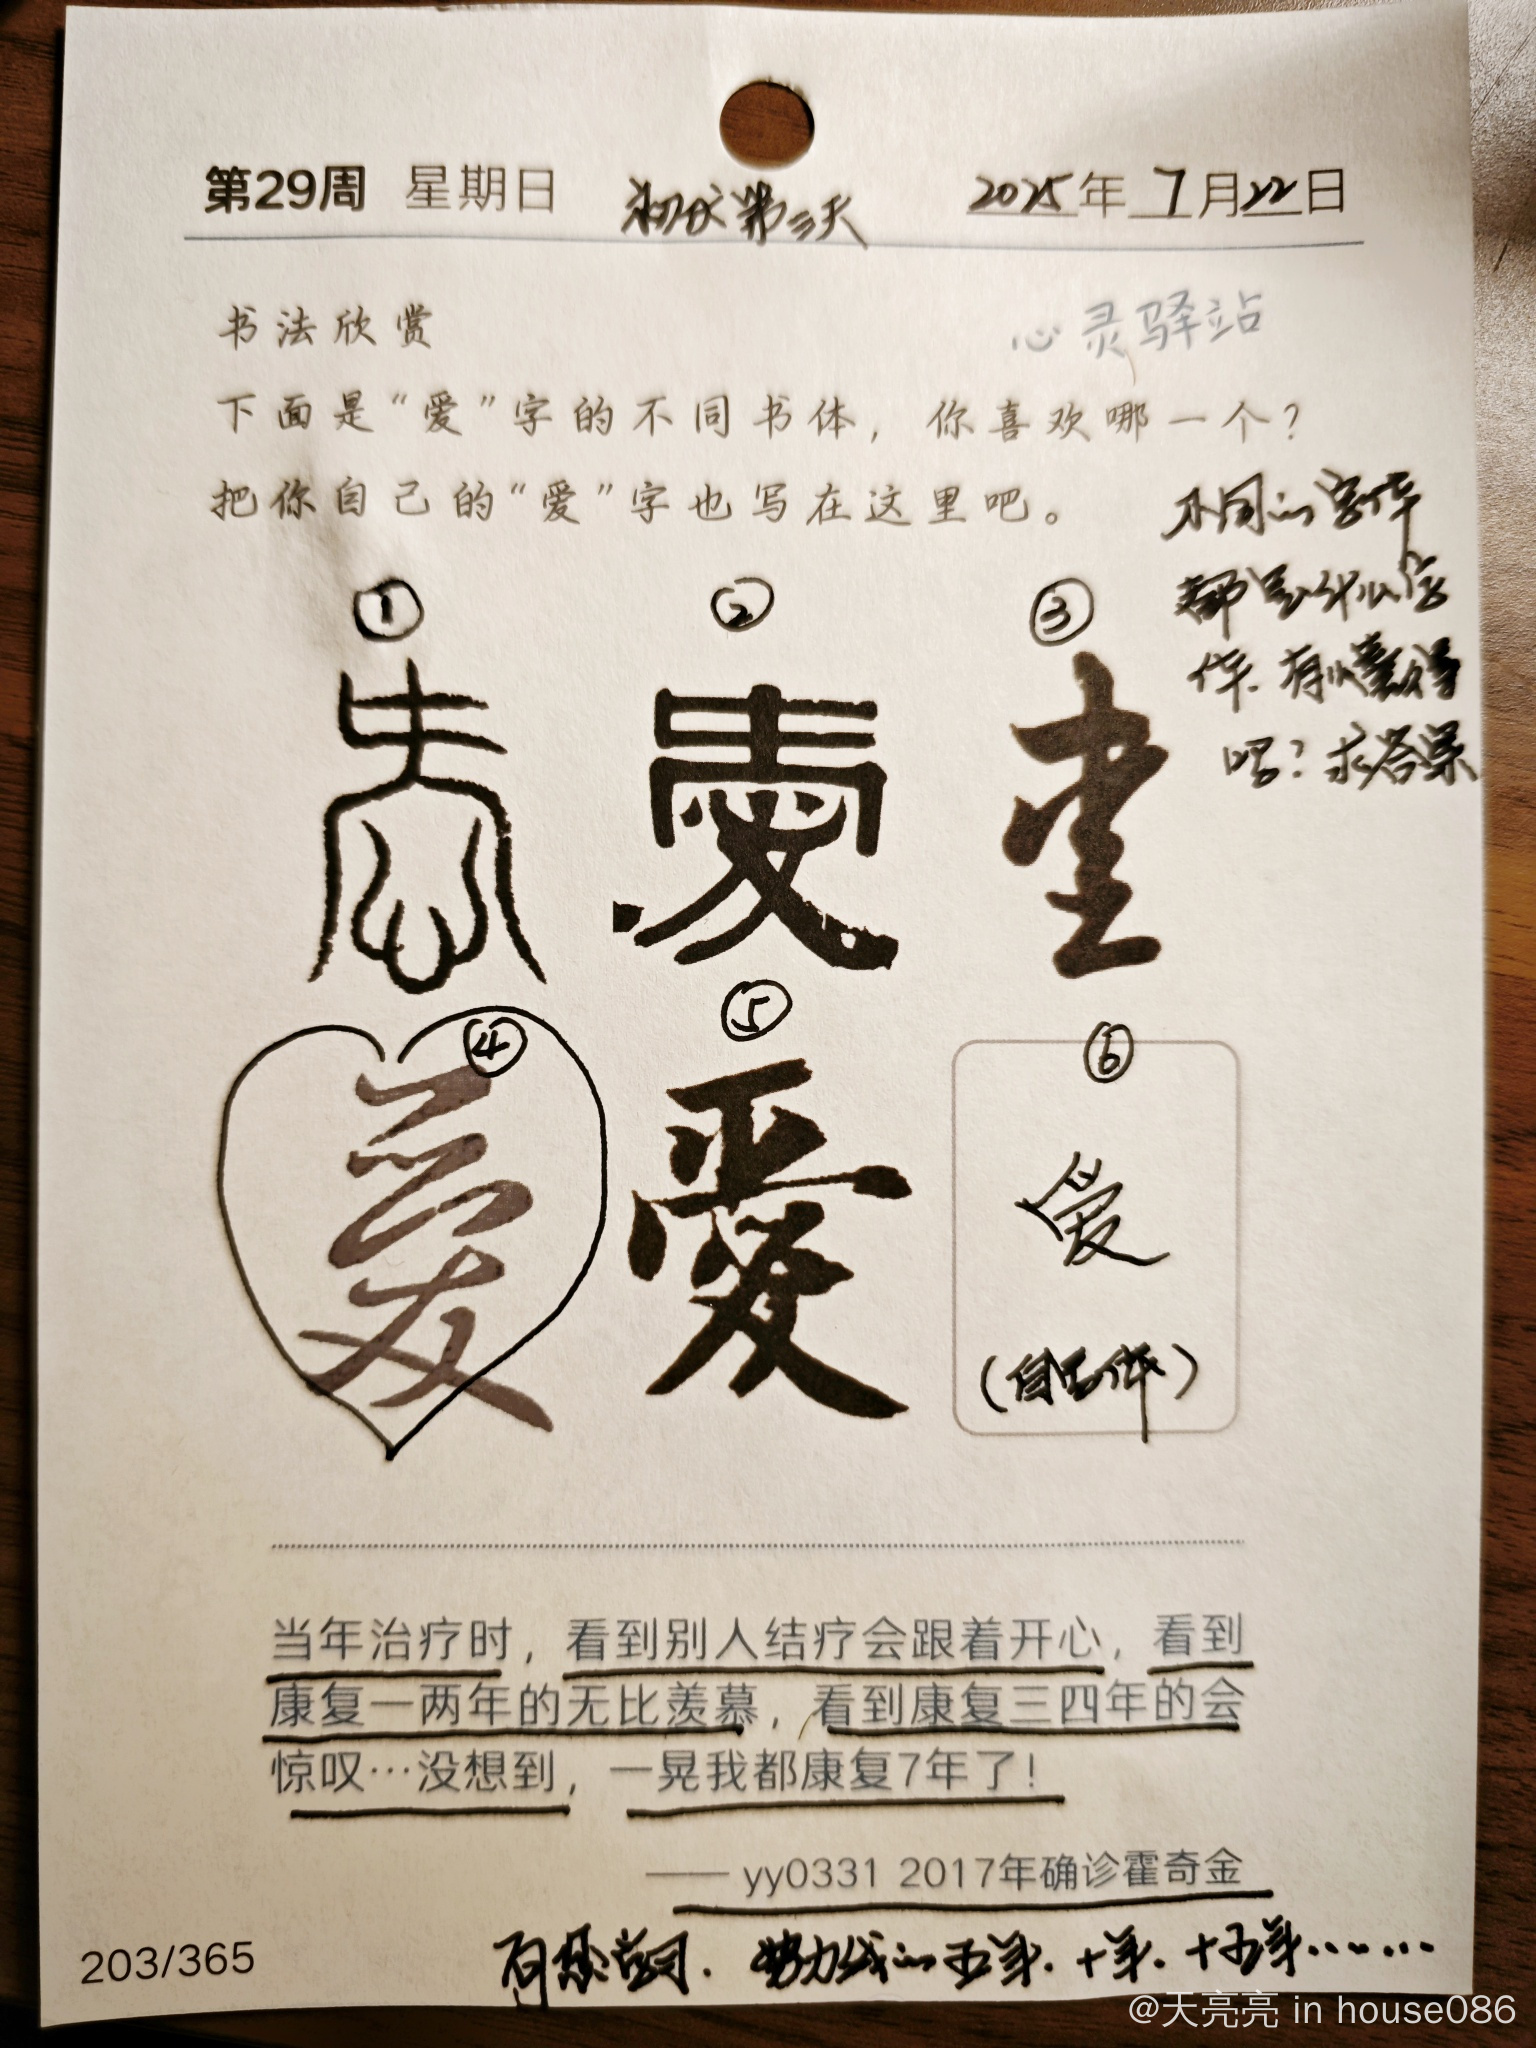 第29周 星期日 初伏第三天 2025年7月22日
书法欣赏 心灵驿站
下面是“爱”字的不同书体，你喜欢哪一个？
把你自己的“爱”字也写在这里吧。
不同的字体
都是什么字
体.有懂得
吗?求答案
① ② ③
④ ⑤ ⑥
愛 爱
(自己体)
当年治疗时，看到别人结疗会跟着开心，看到
康复一两年的无比羡慕，看到康复三四年的会
惊叹…没想到，一晃我都康复7年了！
—— yy0331 2017年确诊霍奇金
努力的五年.十年.十五年……
203/365
@天亮亮 in house086